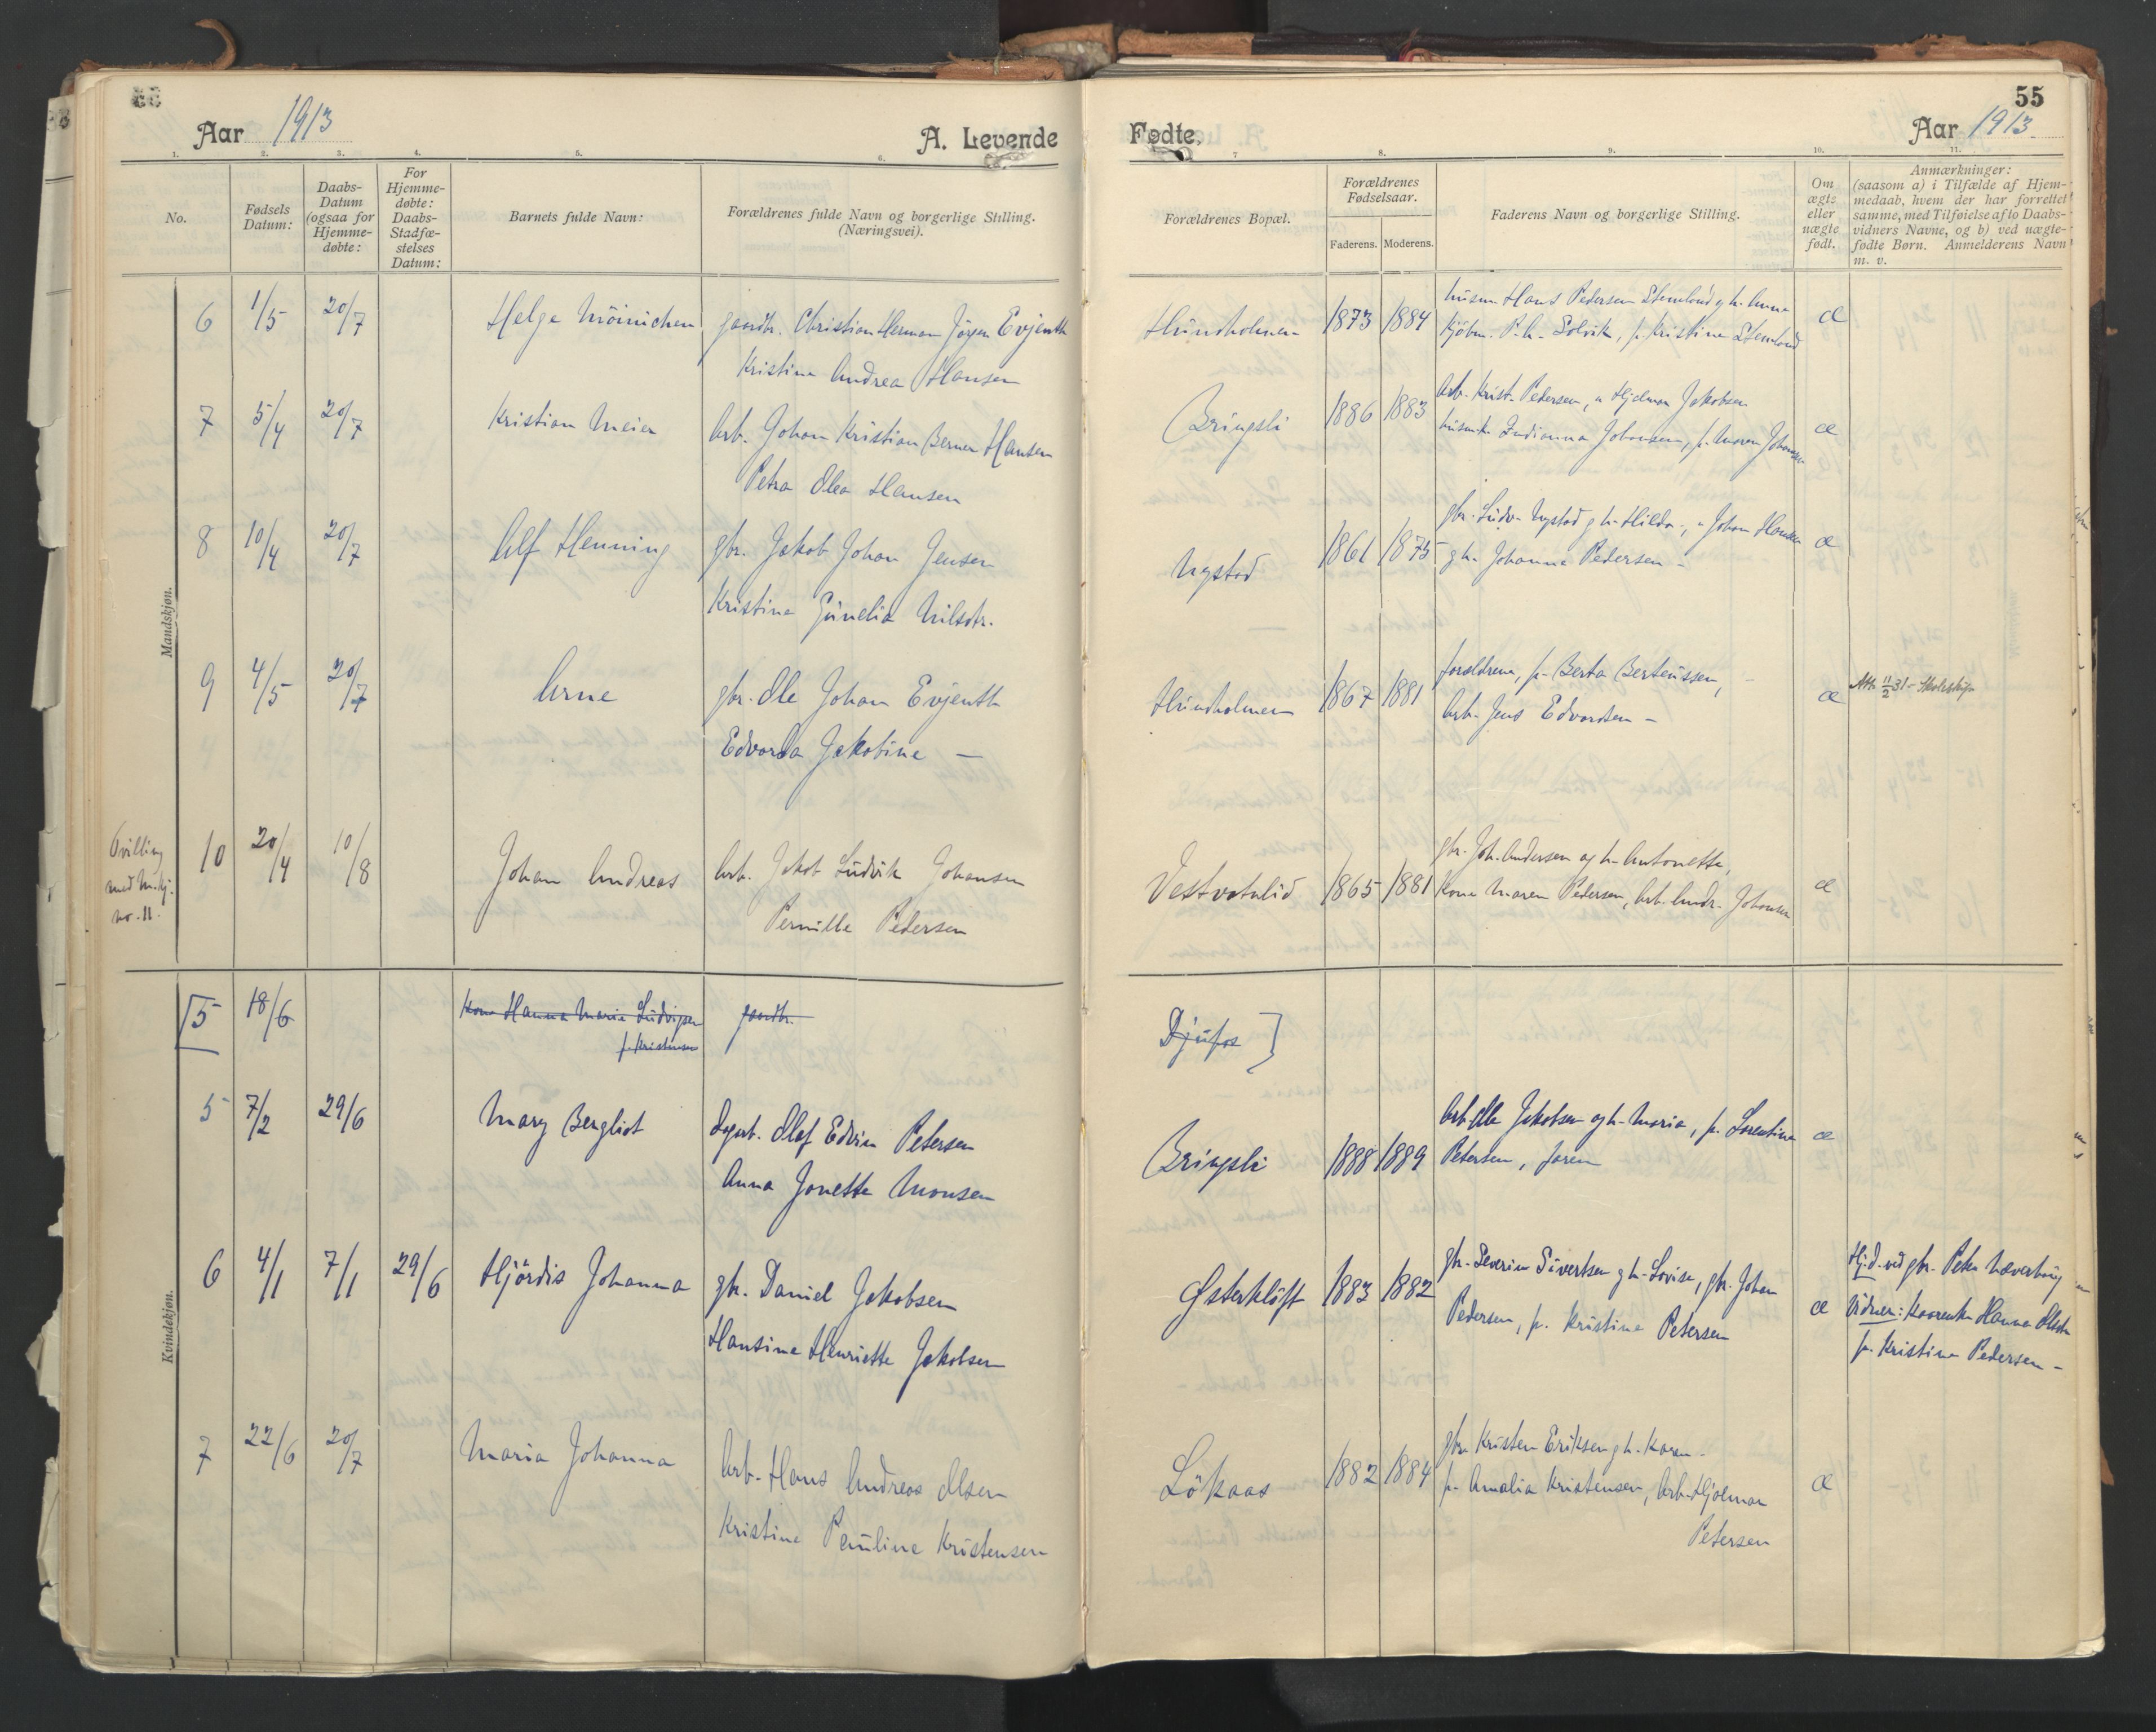 55
Aar 1913
A. Levende
Fødte.
Aar 1913
1. 2. 3. 4. 5. 6. 7 8. 9. 10. 11.
No.
Fødsels Datum:
Daabs- Datum (ogsaa for Hjemme- døbte:
For Hjemme- døbte: Daabs- Stadfæ- stelses Datum:
Barnets fulde Navn:
Forældrenes fulde Navn og borgerlige Stilling.
(Næringsvei).
Forældrenes Bopæl.
Forældrenes Fødselsaar.
Faderens. Moderens.
Faderens Navn og borgerlige Stilling.
Om ægte eller uægte født.
Anmærkninger:
(saasom a) i Tilfælde af Hjem-
medaab, hvem der har forrettet
samme, med Tilføielse af to Daabs-
vidners Navne, og b) ved uægte-
fødte Børn. Anmelderens Navn
m. v.
Mandskjøn.
6 1/5 20/7 Helge Möinichen gaardbr. Christian Herman Jörgen Evjenth
Kristine Andrea Hansen
Hundholmen 1873 1884 Hans Pedersen Stemland g h. Anna
Kjöbm. P. A. Solvik, p. Kristine Stemland
æ
7 5/4 20/7 Kristian Meier Arb. Johan Kristian Berner Hansen
Petra Olea Hansen
Bringsli 1886 1883 Arb. Krist. Pedersen, " Hjalmar Jakobsen
Indianna Johansen, p. Maren Johansen
æ
8 10/4 20/7 Alf Henning gbr. Jakob Johan Jensen
Kristine Gunelia Nilsdtr.
Nystad 1861 1875 gbr. Ludv. Nystad g h. Hilda, " Johan Hansen
g h. Johanna Pedersen -
æ
9 4/5 20/7 Arne gbr. Ole Johan Evjenth
Edvarda Jakobine —
Hundholmen 1867 1881 forældrene, p. Berta Berteussen,
Arb. Jens Edvardsen -
æ Att. 11/2 31 -
Tvilling
med M.kj.
no. 11.
10 20/4 10/8 Johan Andreas Arb. Jakob Ludvik Johansen
Pernille Pedersen
Vestvatnlid 1865 1881 gbr. Joh. Andersen og h. Antonette,
Kone Maren Pedersen, Arb. Andr. Johansen
æ
Kvindekjøn.
[5 18/6 Kone Hanna Maria Ludvigsen gaardbr.
p. Kristensen
Djupos ]
5 7/2 29/6 Mary Bergliot Olaf Edvin Petersen
Anna Jonette Monsen
Bringsli 1888 1889 Arb. Ole Jakobsen og h. Maria, p. Lorentine
Petersen, faren
æ
6 4/1 7/1 29/6 Hjördis Johanna gbr. Daniel Jakobsen
Hansine Henriette Jakobsen
Østerkløft 1883 1882 gbr. Severin Sivertsen g h. Lovise, gbr. Johan
Pedersen, p. Kristine Petersen
æ
Hj.d. ved gbr. Peter Næverhaug
Vidner: Hanna
p. Kristine Pedersen -
7 22/6 20/7 Maria Johanna Arb. Hans Andreas Olsen
Kristine Pauline Kristensen
Lökaas 1882 1884 gbr. Kristen Eriksen g h. Karen -
p. Amalia Kristensen, Arb. Hjalmar
Petersen
æ